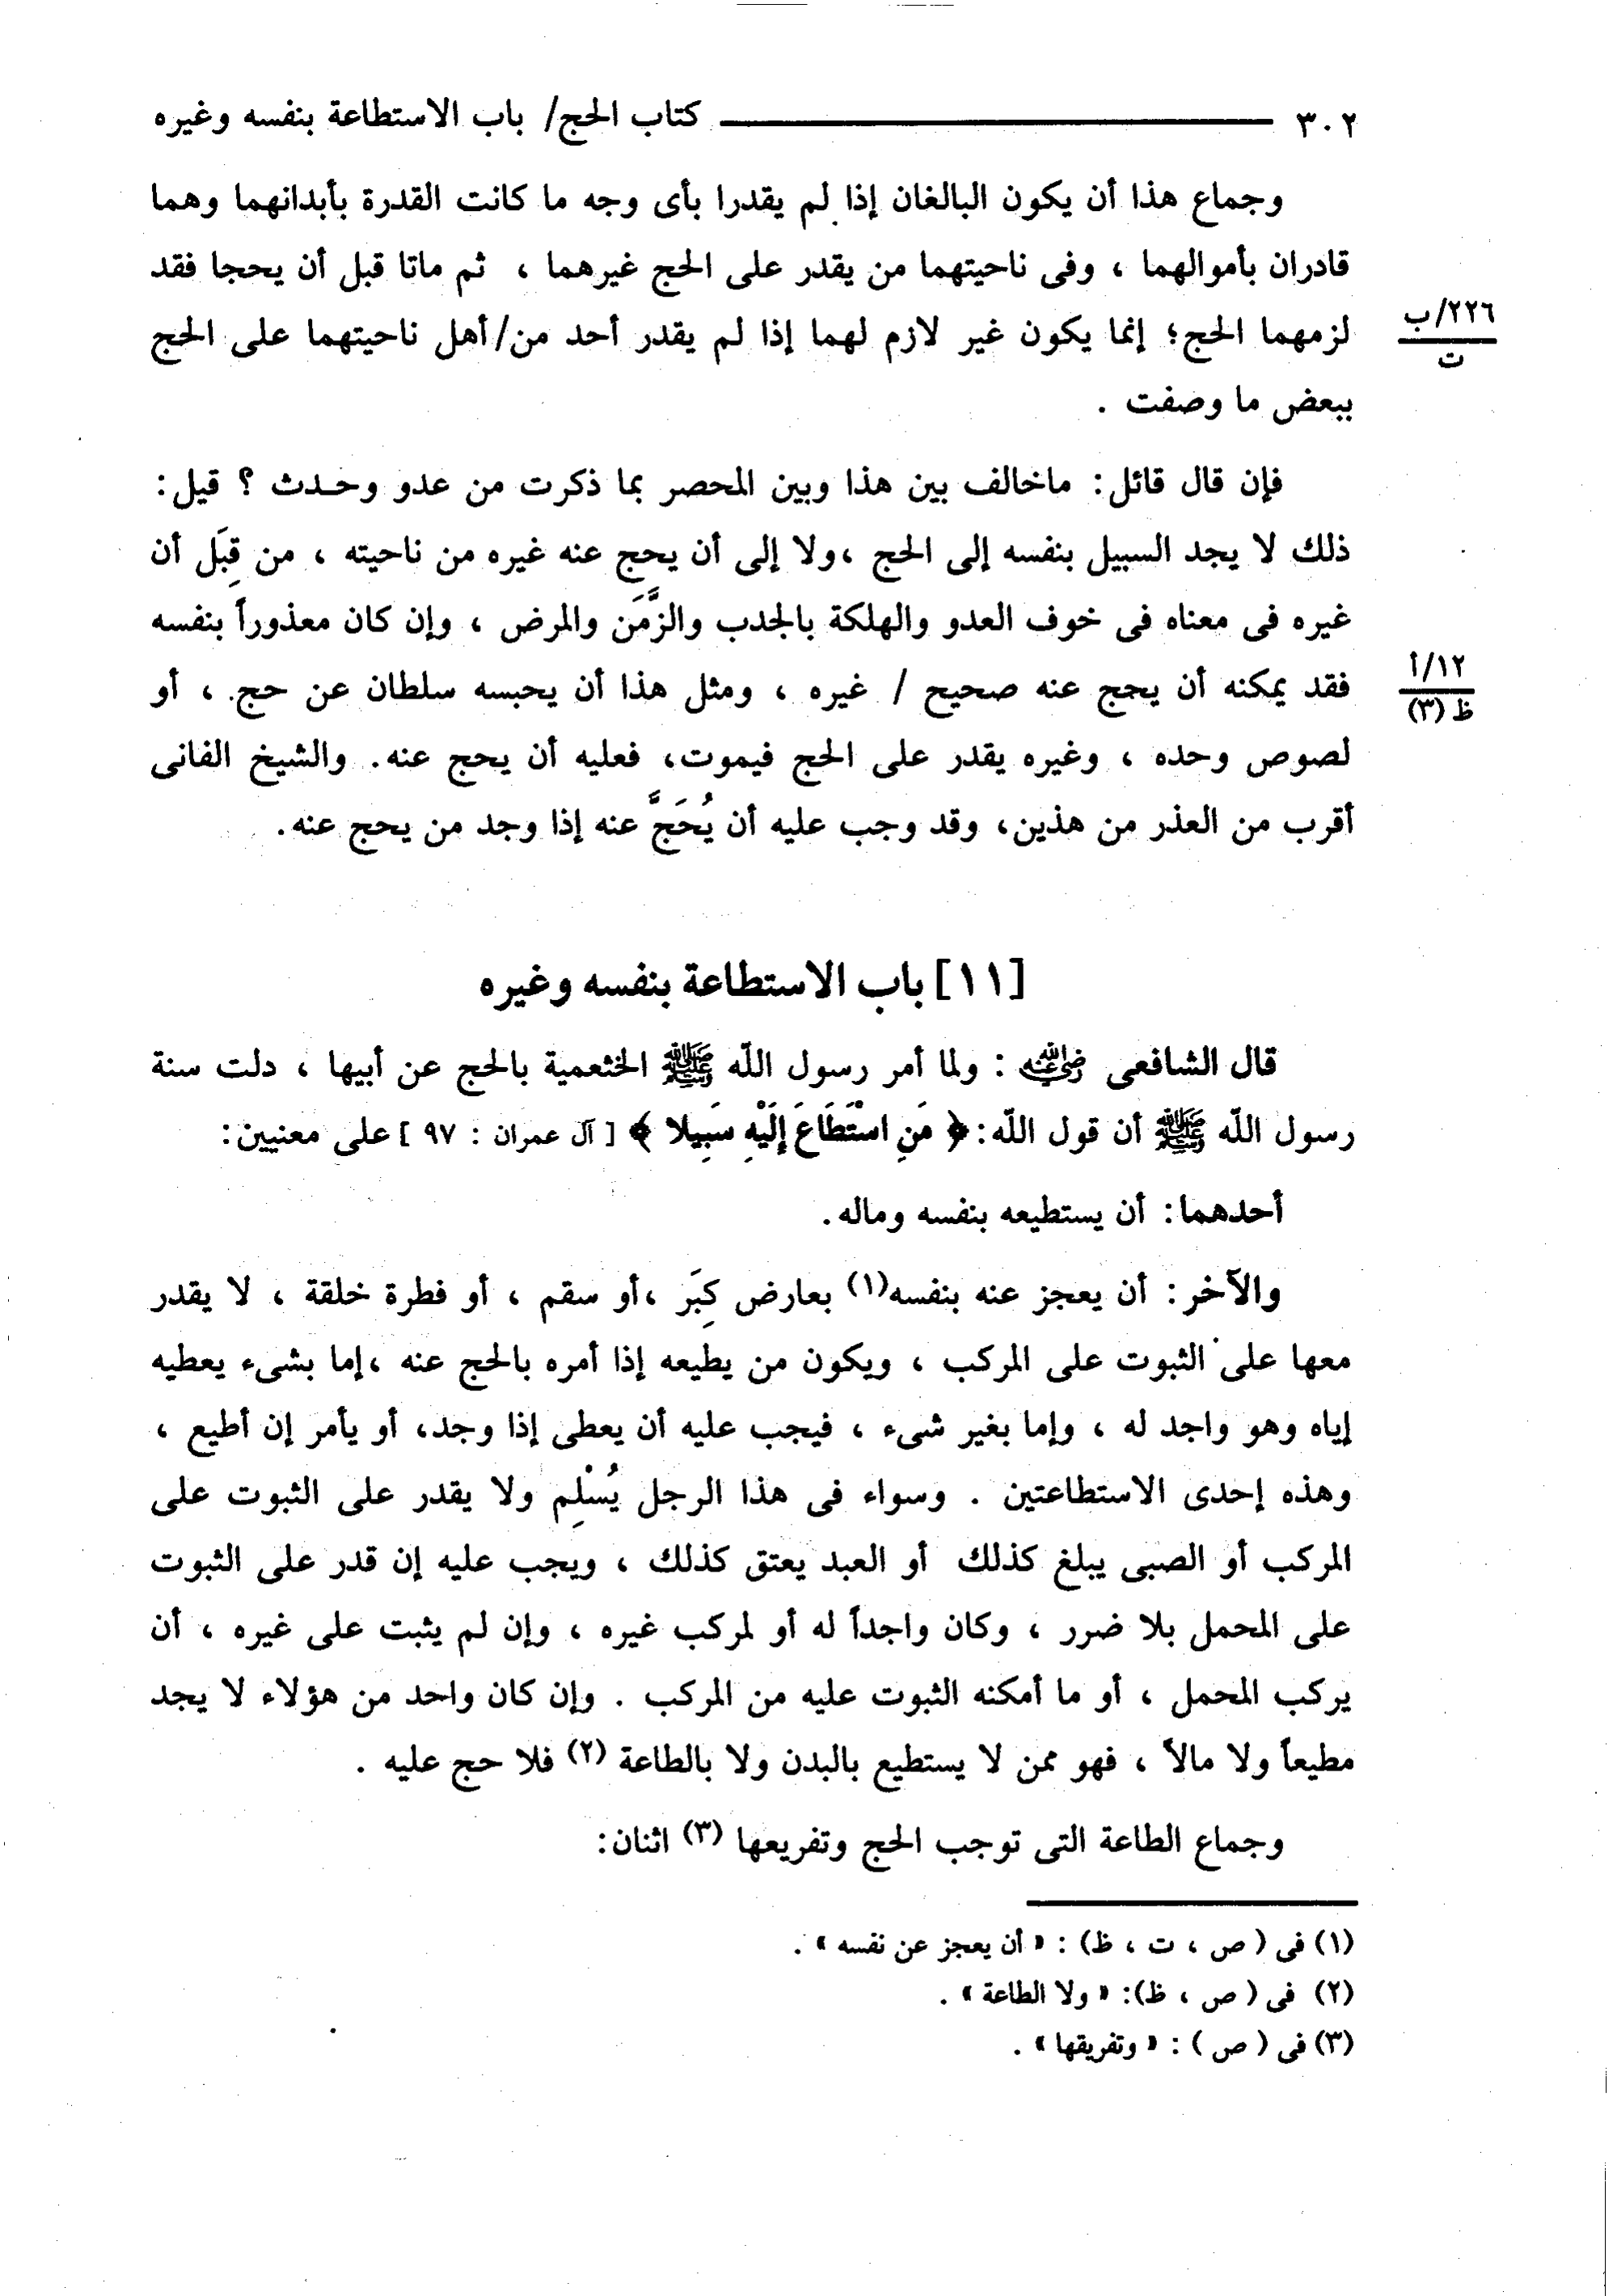 ٣٠٢ كتاب الحج/ باب الاستطاعة بنفسه وغيره
وجماع هذا أن يكون البالغان إذا لم يقدرا بأى وجه ما كانت القدرة بأبدانهما وهما
قادران بأموالهما ، وفى ناحيتهما من يقدر على الحج غيرهما ، ثم ماتا قبل أن يحجا فقد
لزمهما الحج؛ إنما يكون غير لازم لهما إذا لم يقدر أحد من/أهل ناحيتهما على الحج
٢٢٦/ب
ت
ببعض ما وصفت .
فإن قال قائل: ماخالف بين هذا وبين المحصر بما ذكرت من عدو وحدث ؟ قيل:
ذلك لا يجد السبيل بنفسه إلى الحج ،ولا إلى أن يحج عنه غيره من ناحيته ، من قِبَل أن
غيره فى معناه فى خوف العدو والهلكة بالجدب والزَّمَن والمرض ، وإن كان معذوراً بنفسه
فقد يمكنه أن يحج عنه صحيح / غيره ، ومثل هذا أن يحبسه سلطان عن حج ، أو
١٢/أ
ظ (٣)
لصوص وحده ، وغيره يقدر على الحج فيموت، فعليه أن يحج عنه. والشيخ الفانى
أقرب من العذر من هذين، وقد وجب عليه أن يُحَجَّ عنه إذا وجد من يحج عنه.
[١١] باب الاستطاعة بنفسه وغيره
قال الشافعى رضي الله عنه : ولما أمر رسول اللّه ﷺ الخثعمية بالحج عن أبيها ، دلت سنة
رسول اللّه ﷺ أن قول اللّه: ﴿ مَنِ اسْتَطَاعَ إِلَيْهِ سَبِيلا ﴾ [ آل عمران : ٩٧ ] على معنيين:
أحدهما: أن يستطيعه بنفسه وماله.
والآخر: أن يعجز عنه بنفسه(١) بعارض كِبَر ،أو سقم ، أو فطرة خلقة ، لا يقدر
معها على الثبوت على المركب ، ويكون من يطيعه إذا أمره بالحج عنه ،إما بشىء يعطيه
إياه وهو واجد له ، وإما بغير شىء ، فيجب عليه أن يعطى إذا وجد، أو يأمر إن أطيع ،
وهذه إحدى الاستطاعتين . وسواء فى هذا الرجل يُسْلِم ولا يقدر على الثبوت على
المركب أو الصبى يبلغ كذلك أو العبد يعتق كذلك ، ويجب عليه إن قدر على الثبوت
على المحمل بلا ضرر ، وكان واجداً له أو لمركب غيره ، وإن لم يثبت على غيره ، أن
يركب المحمل ، أو ما أمكنه الثبوت عليه من المركب . وإن كان واحد من هؤلاء لا يجد
مطيعاً ولا مالاً ، فهو ممن لا يستطيع بالبدن ولا بالطاعة (٢) فلا حج عليه .
وجماع الطاعة التى توجب الحج وتفريعها (٣) اثنان:
(١) فى ( ص ، ت ، ظ) : « أن يعجز عن نفسه » .
(٢) فى ( ص ، ظ): « ولا الطاعة » .
(٣) فى ( ص ) : « وتفريقها » .